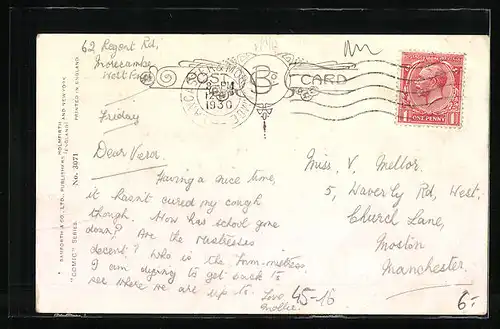 62 Regent Rd,
Morecambe
West
Friday
POST CARD
1930
ONE PENNY
Dear Vera.
Having a nice time,
it hasn't cured my cough
though. How has school gone
down? Are the Mistresses
decent? Who is the form-mistress.
I am dying to get back to
see where we are up to. Love
Mollie.
Miss, V, Mellor,
5, Waverly Rd, West,
Church Lane,
Moston
Manchester.
45-16
6.-
BAMFORTH & CO., LTD., PUBLISHERS, HOLMFIRTH AND NEW YORK
(ENGLAND)
PRINTED IN ENGLAND
"COMIC" SERIES No. 3071